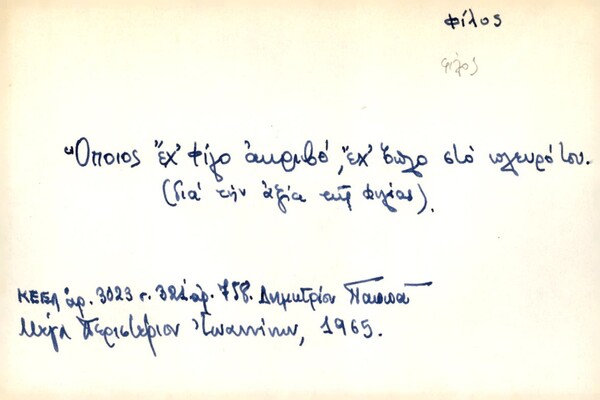 φίλος
φίλος
Ὅποιος ἔχ' φίλο ἀκριβό, ἔχ' ξύλο στὸ πλευρό του.
(διά τὴν ἀξία τῆς φιλίας).
ΚΕΕΛ ἀρ. 3023 σ. 321 ἀρ. 758. Δημητρίου Παππᾶ
Μέγα Περιστέριον Ἰωαννίνων, 1965.